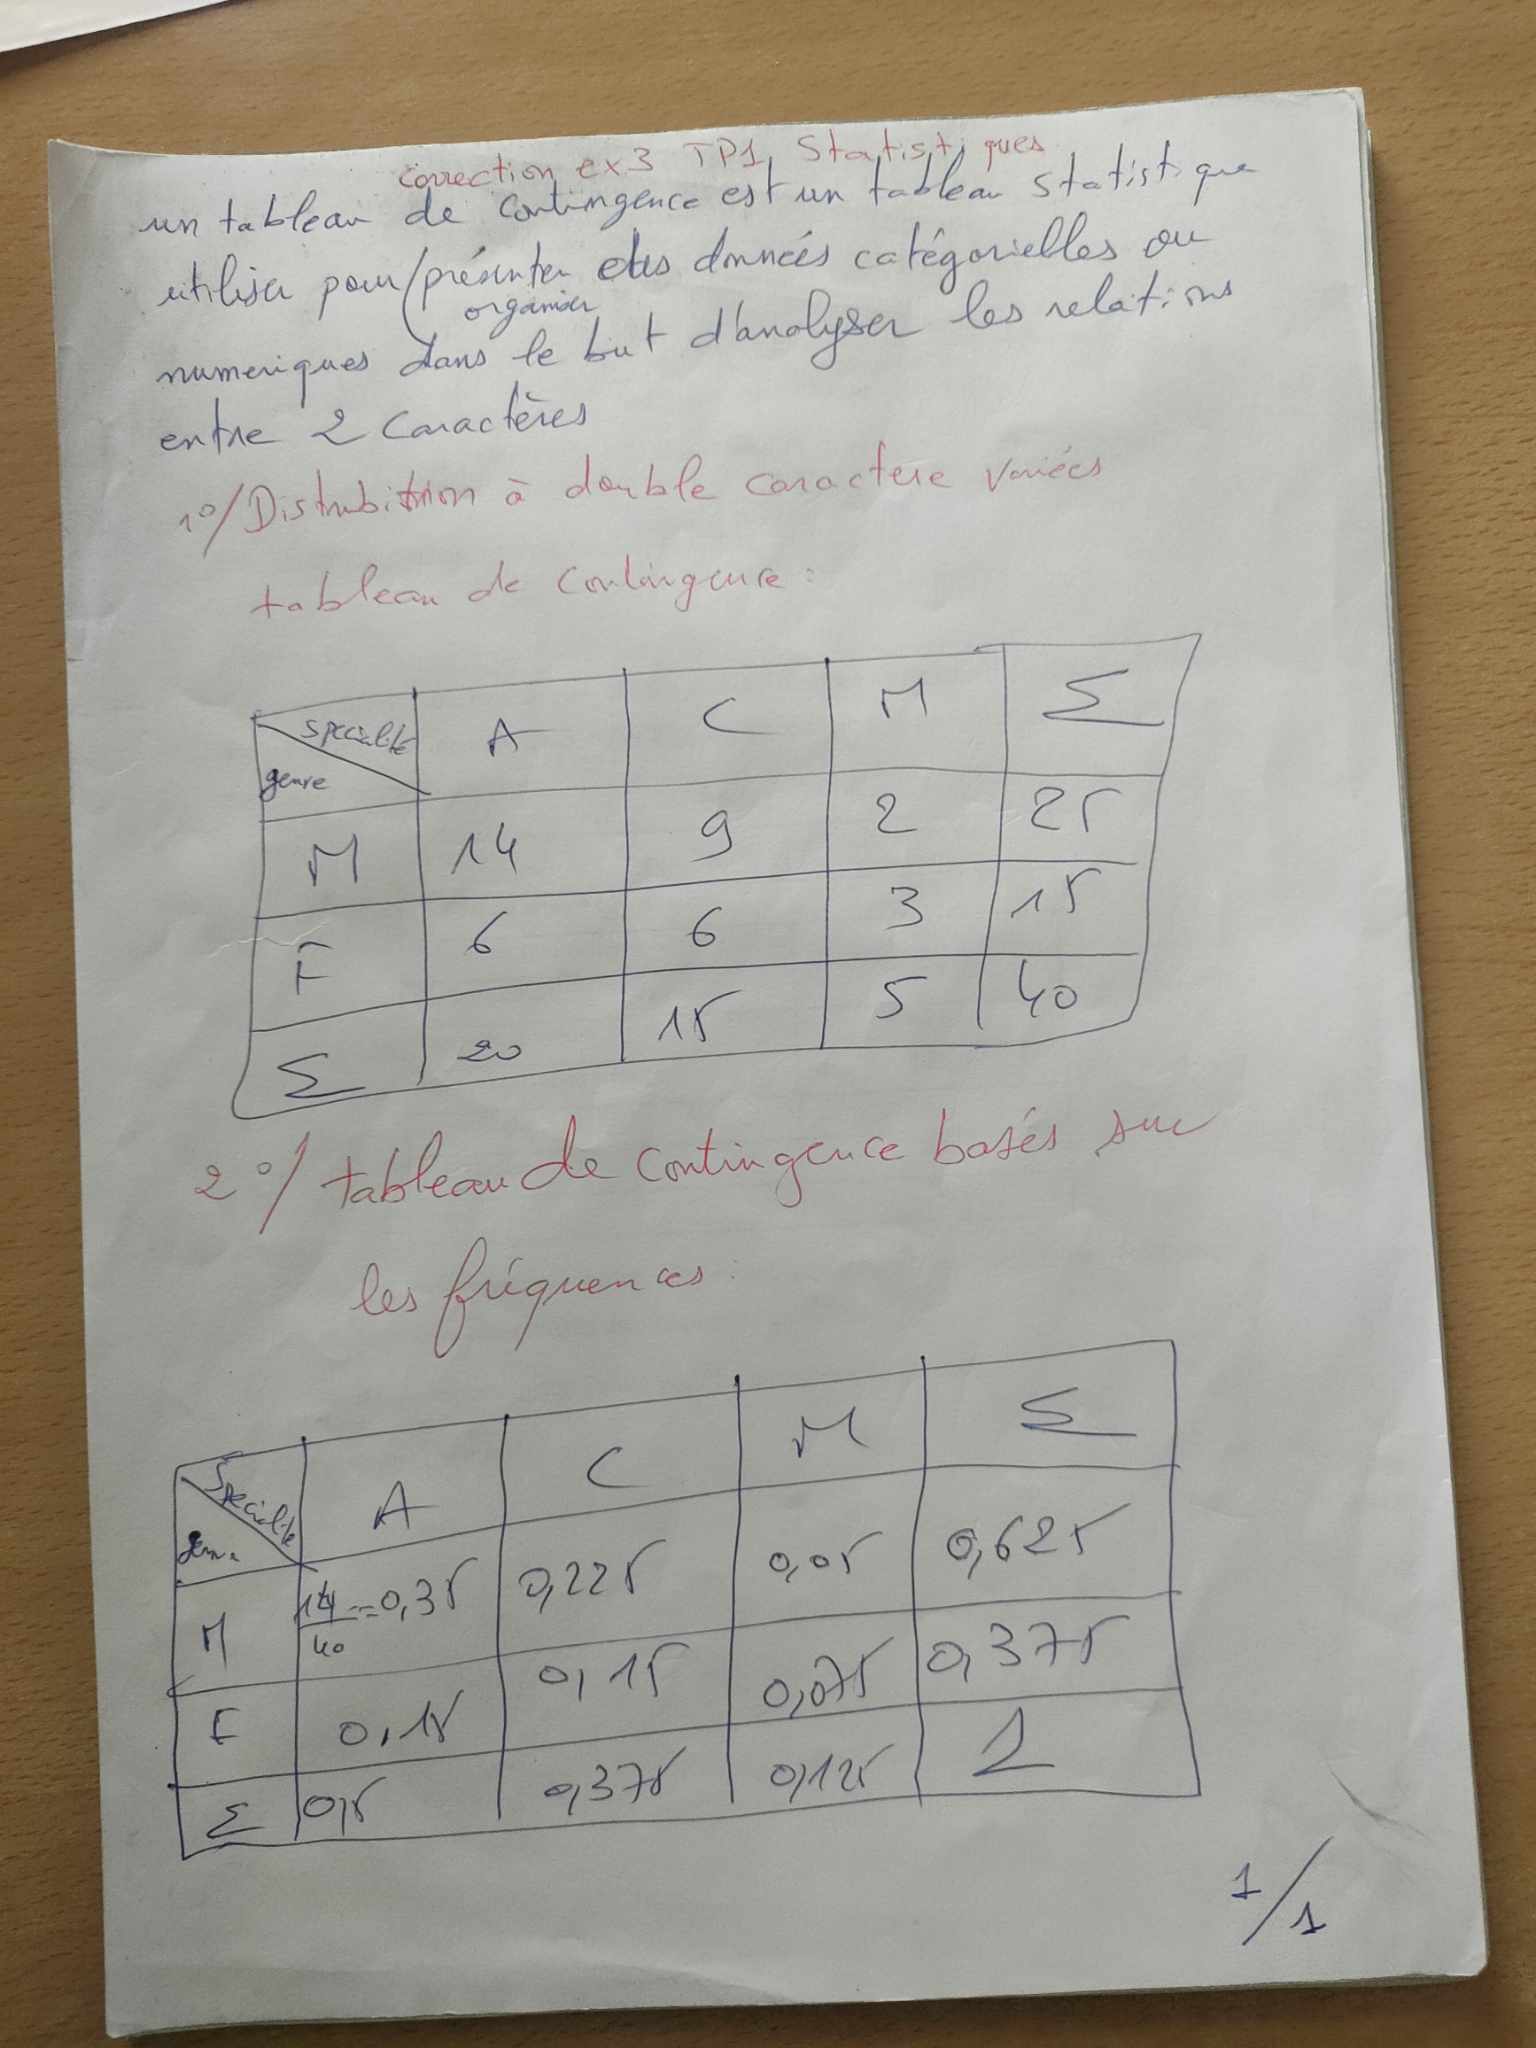 correction ex3 TP1 Statistiques
un tableau de contingence est un tableau statistique
utiliser pour (présenter des données catégorielles ou
organiser
numeriques dans le but d'analyser les relations
entre 2 caractères
1°/ Distrubition à double caractere variées
tableau de contingence :
specialité genre A C M Σ
M 14 9 2 25
F 6 6 3 15
Σ 20 15 5 40
2°/ tableau de contingence basés sur
les fréquences :
Specialité genre A C M Σ
M 14/40 = 0,35 0,225 0,05 0,625
F 0,15 0,15 0,075 0,375
Σ 0,5 0,375 0,125 1
1/1